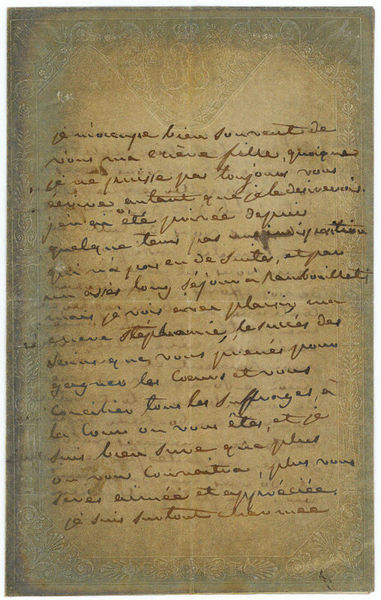 je m'occupe bien souvent de
vous ma chère fille, quoique
je ne puisse pas toujours vous
écrire autant que je le desirerois.
j'en ai été privée depuis
quelque tems par une indisposition
qui n'a pas eu de suites, et par
un assés long séjour à Rambouillet;
mais je vois avec plaisir ma
chere Stéphanie, le succès des
soins que vous prenés pour
gagner les coeurs et vous
concilier tous les suffrages, à
la Cour où vous êtes, et je
suis bien sure que plus
on vous connoitra, plus vous
serés aimée et appréciée.
je suis surtout charmée